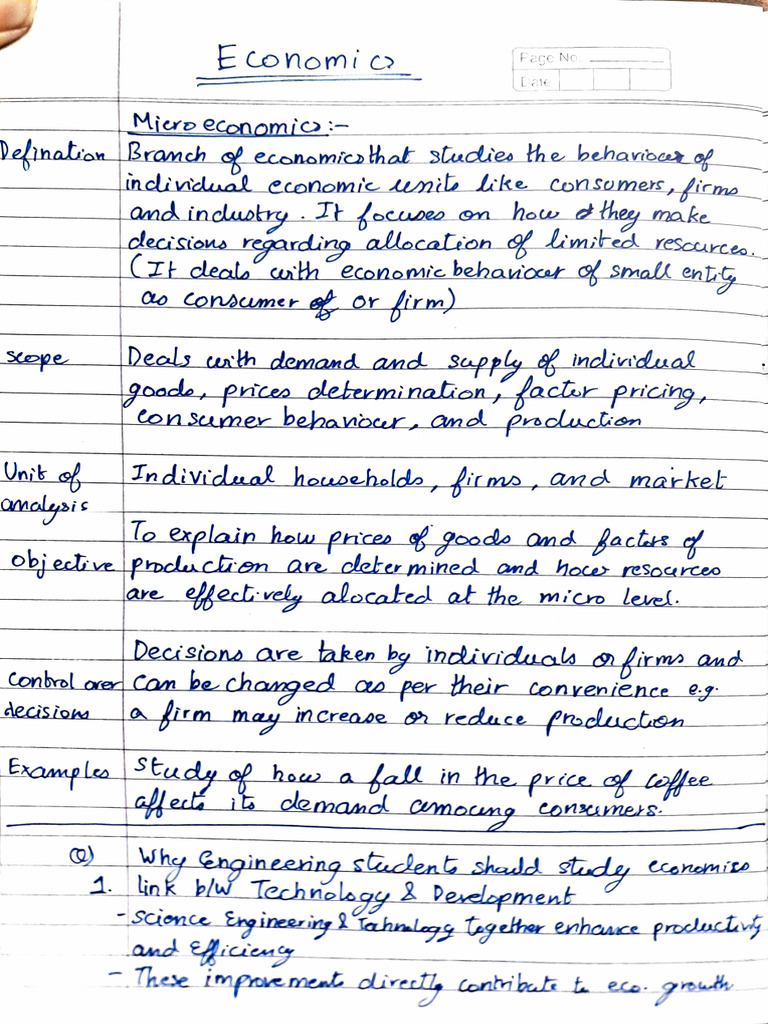 Economics
Page No.
Date
Microeconomics:-
Defination Branch of economics that studies the behaviour of
individual economic units like consumers, firms
and industry. It focuses on how they make
decisions regarding allocation of limited resources.
(It deals with economic behaviour of small entity
as consumer or firm)
scope Deals with demand and supply of individual
goods, prices determination, factor pricing,
consumer behaviour, and production
Unit of Individual households, firms, and market
analysis
To explain how prices of goods and factors of
objective production are determined and how resources
are effectively alocated at the micro level.
Decisions are taken by individuals or firms and
control over can be changed as per their convenience e.g.
decisions a firm may increase or reduce production
Examples Study of how a fall in the price of coffee
affects its demand amoung consumers.
Q) Why Engineering students should study economics
1. link b/w Technology & Development
- Science Engineering & Technology together enhance productivity
and Efficiency
- These improvements directly contribute to eco. growth